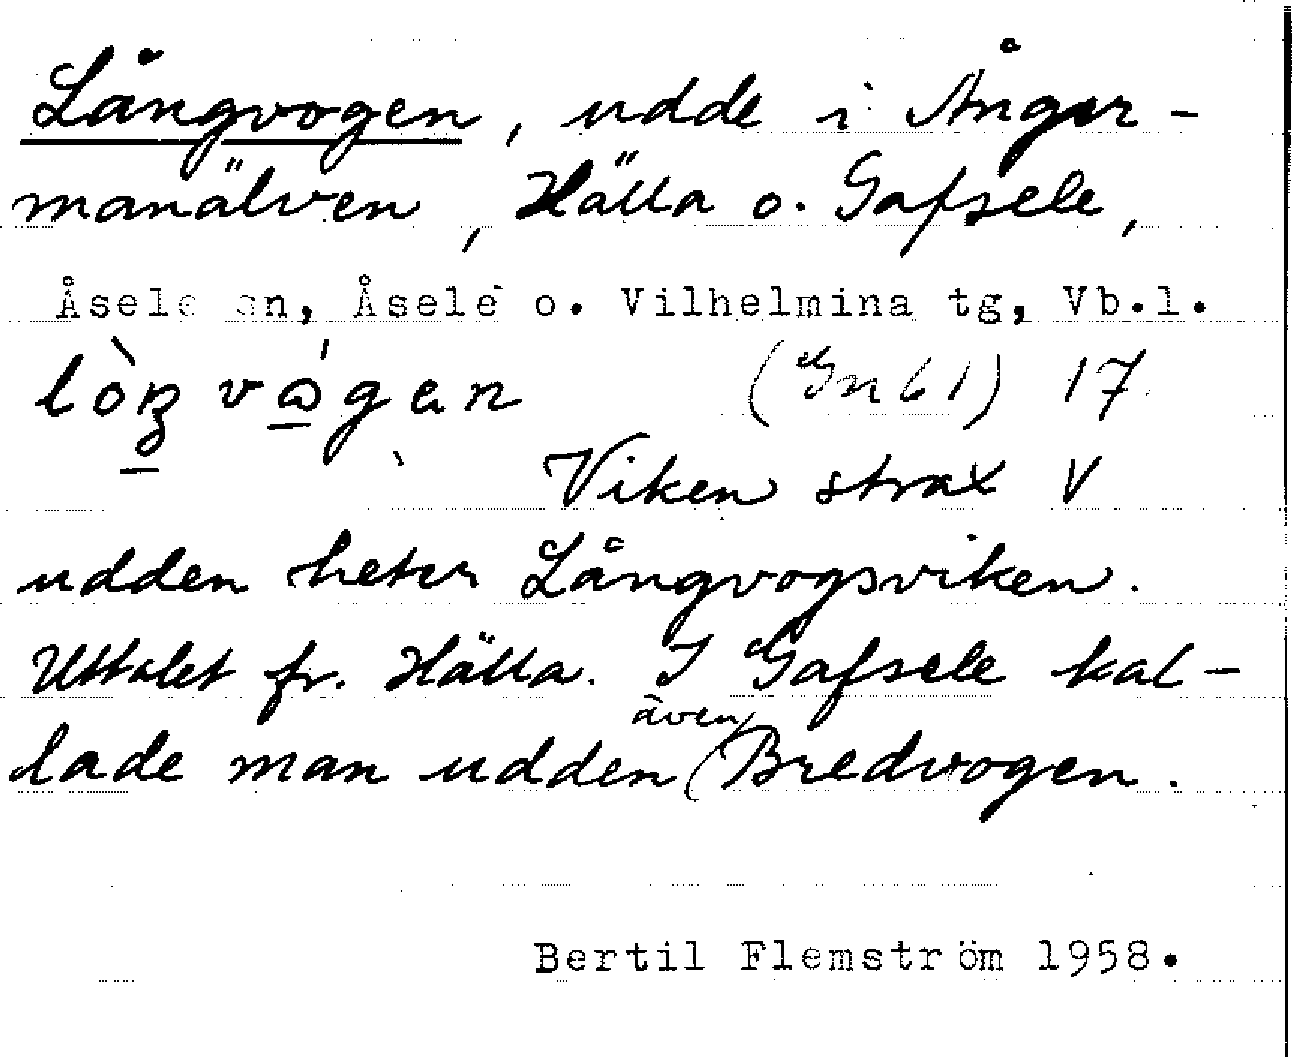 Långvogen, udde i Ånger-
manälven, Hälla o. Gafsele,
Åsele sn, Åsele o. Vilhelmina tg, Vb.l.
(Gn 61) 17
Viken strax V
udden heter Långvogsviken.
Uttalet fr. Hälla. I Gafsele kal-
lade man udden även Bredvogen.
Bertil Flemström 1958.